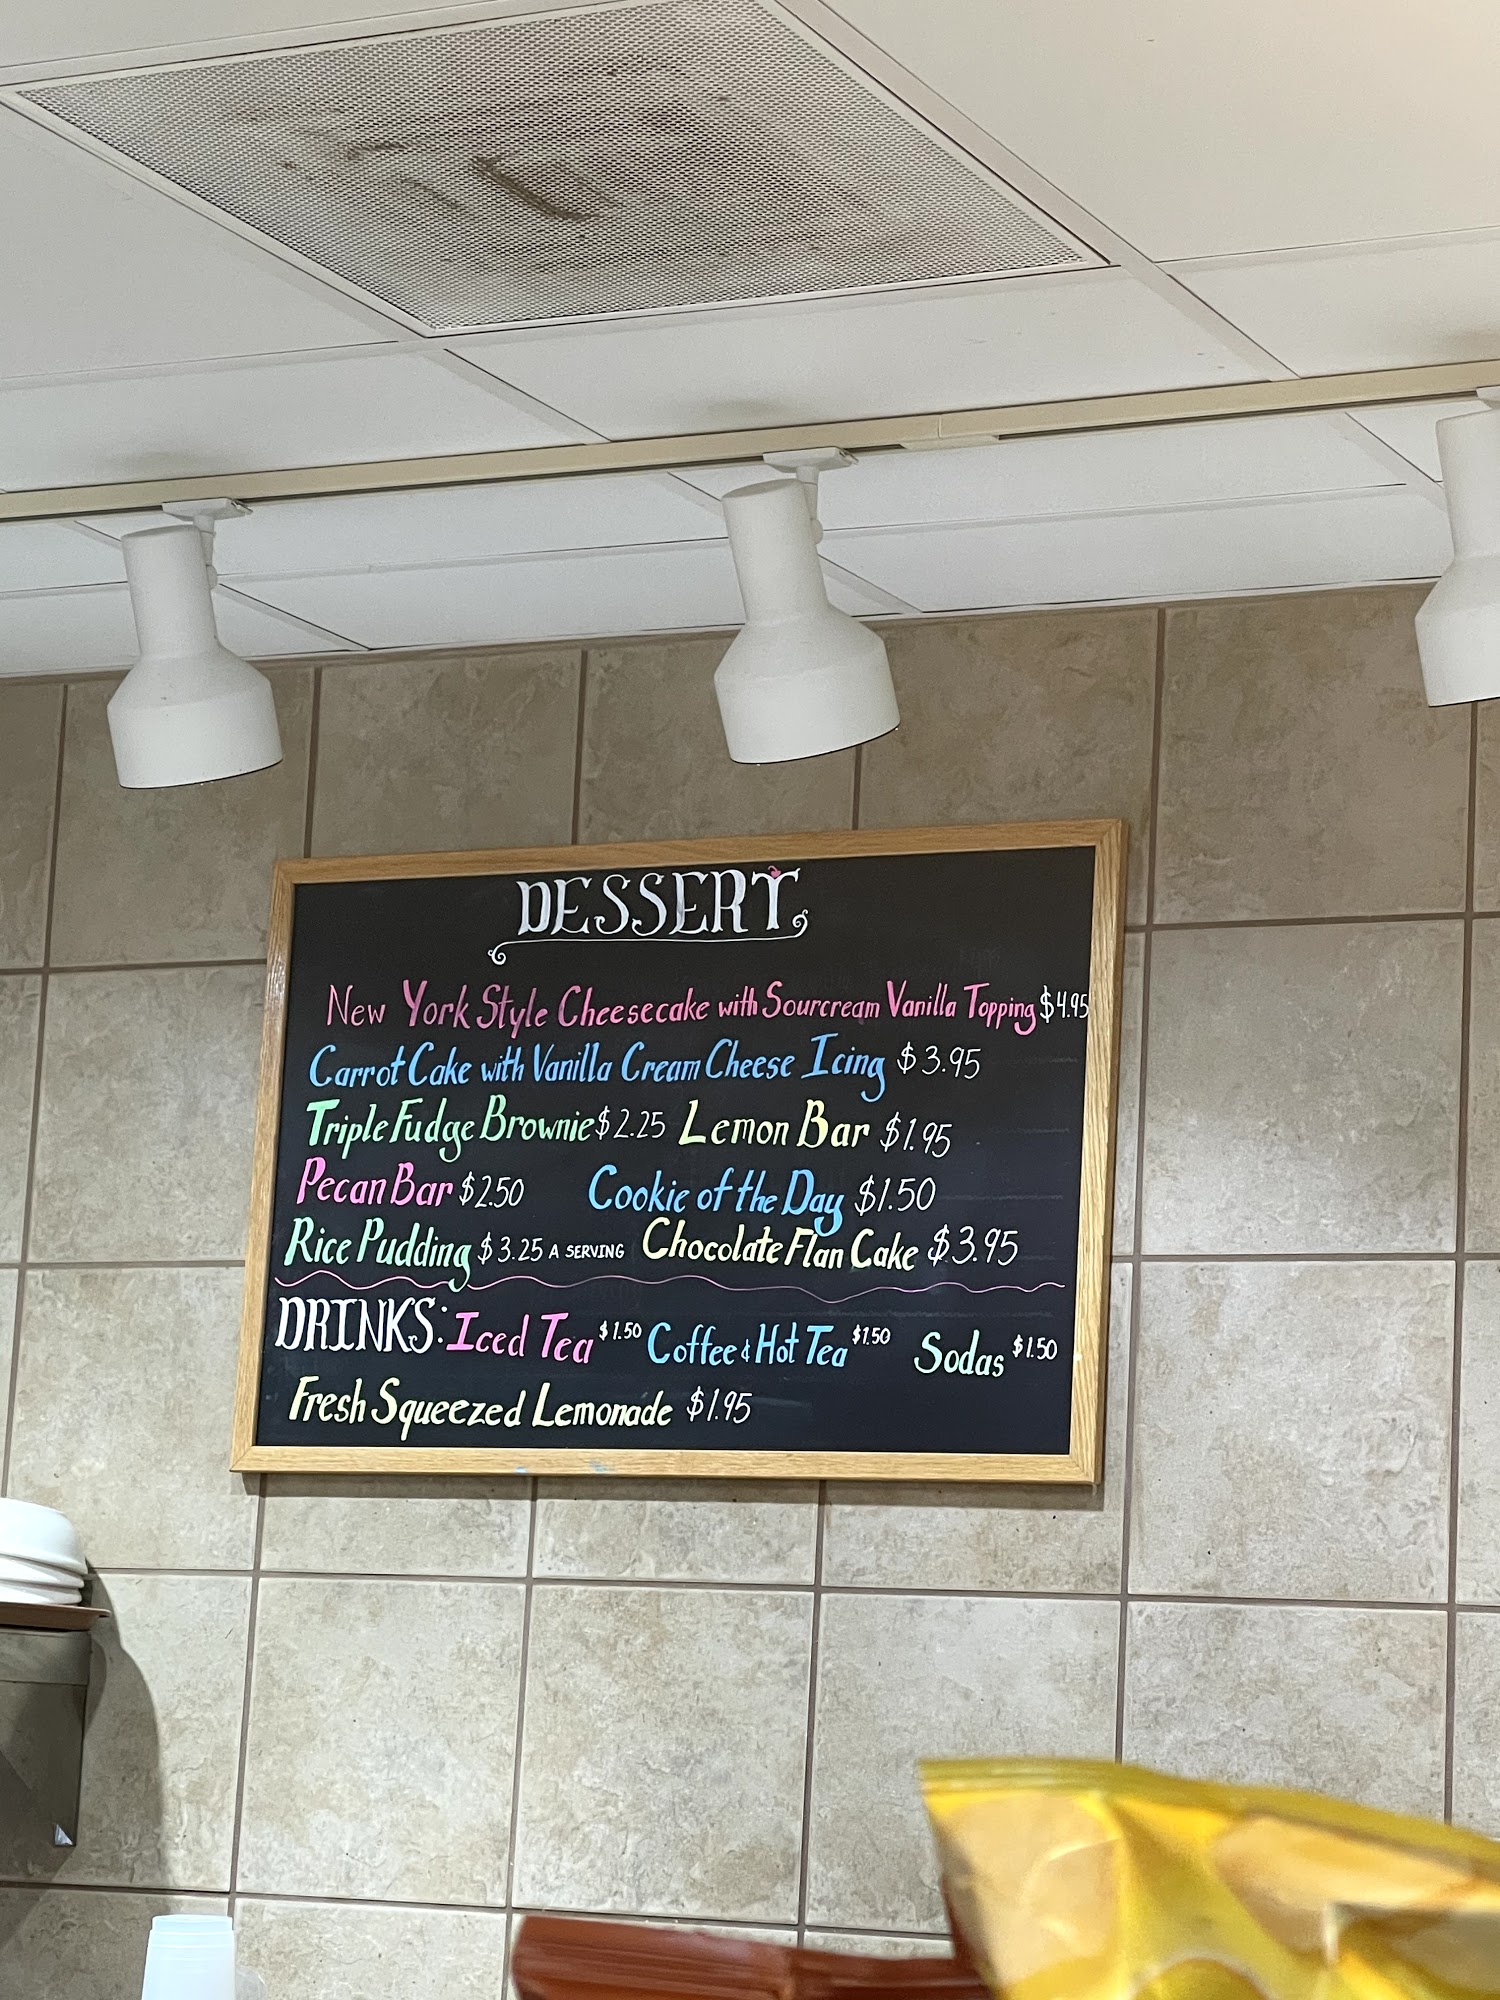 DESSERT
New York Style Cheesecake with Sourcream Vanilla Topping $4.95
Carrot Cake with Vanilla Cream Cheese Icing $3.95
Triple Fudge Brownie $2.25 Lemon Bar $1.95
Pecan Bar $2.50 Cookie of the Day $1.50
Rice Pudding $3.25 A SERVING Chocolate Flan Cake $3.95
DRINKS: Iced Tea $1.50 Coffee & Hot Tea $1.50 Sodas $1.50
Fresh Squeezed Lemonade $1.95